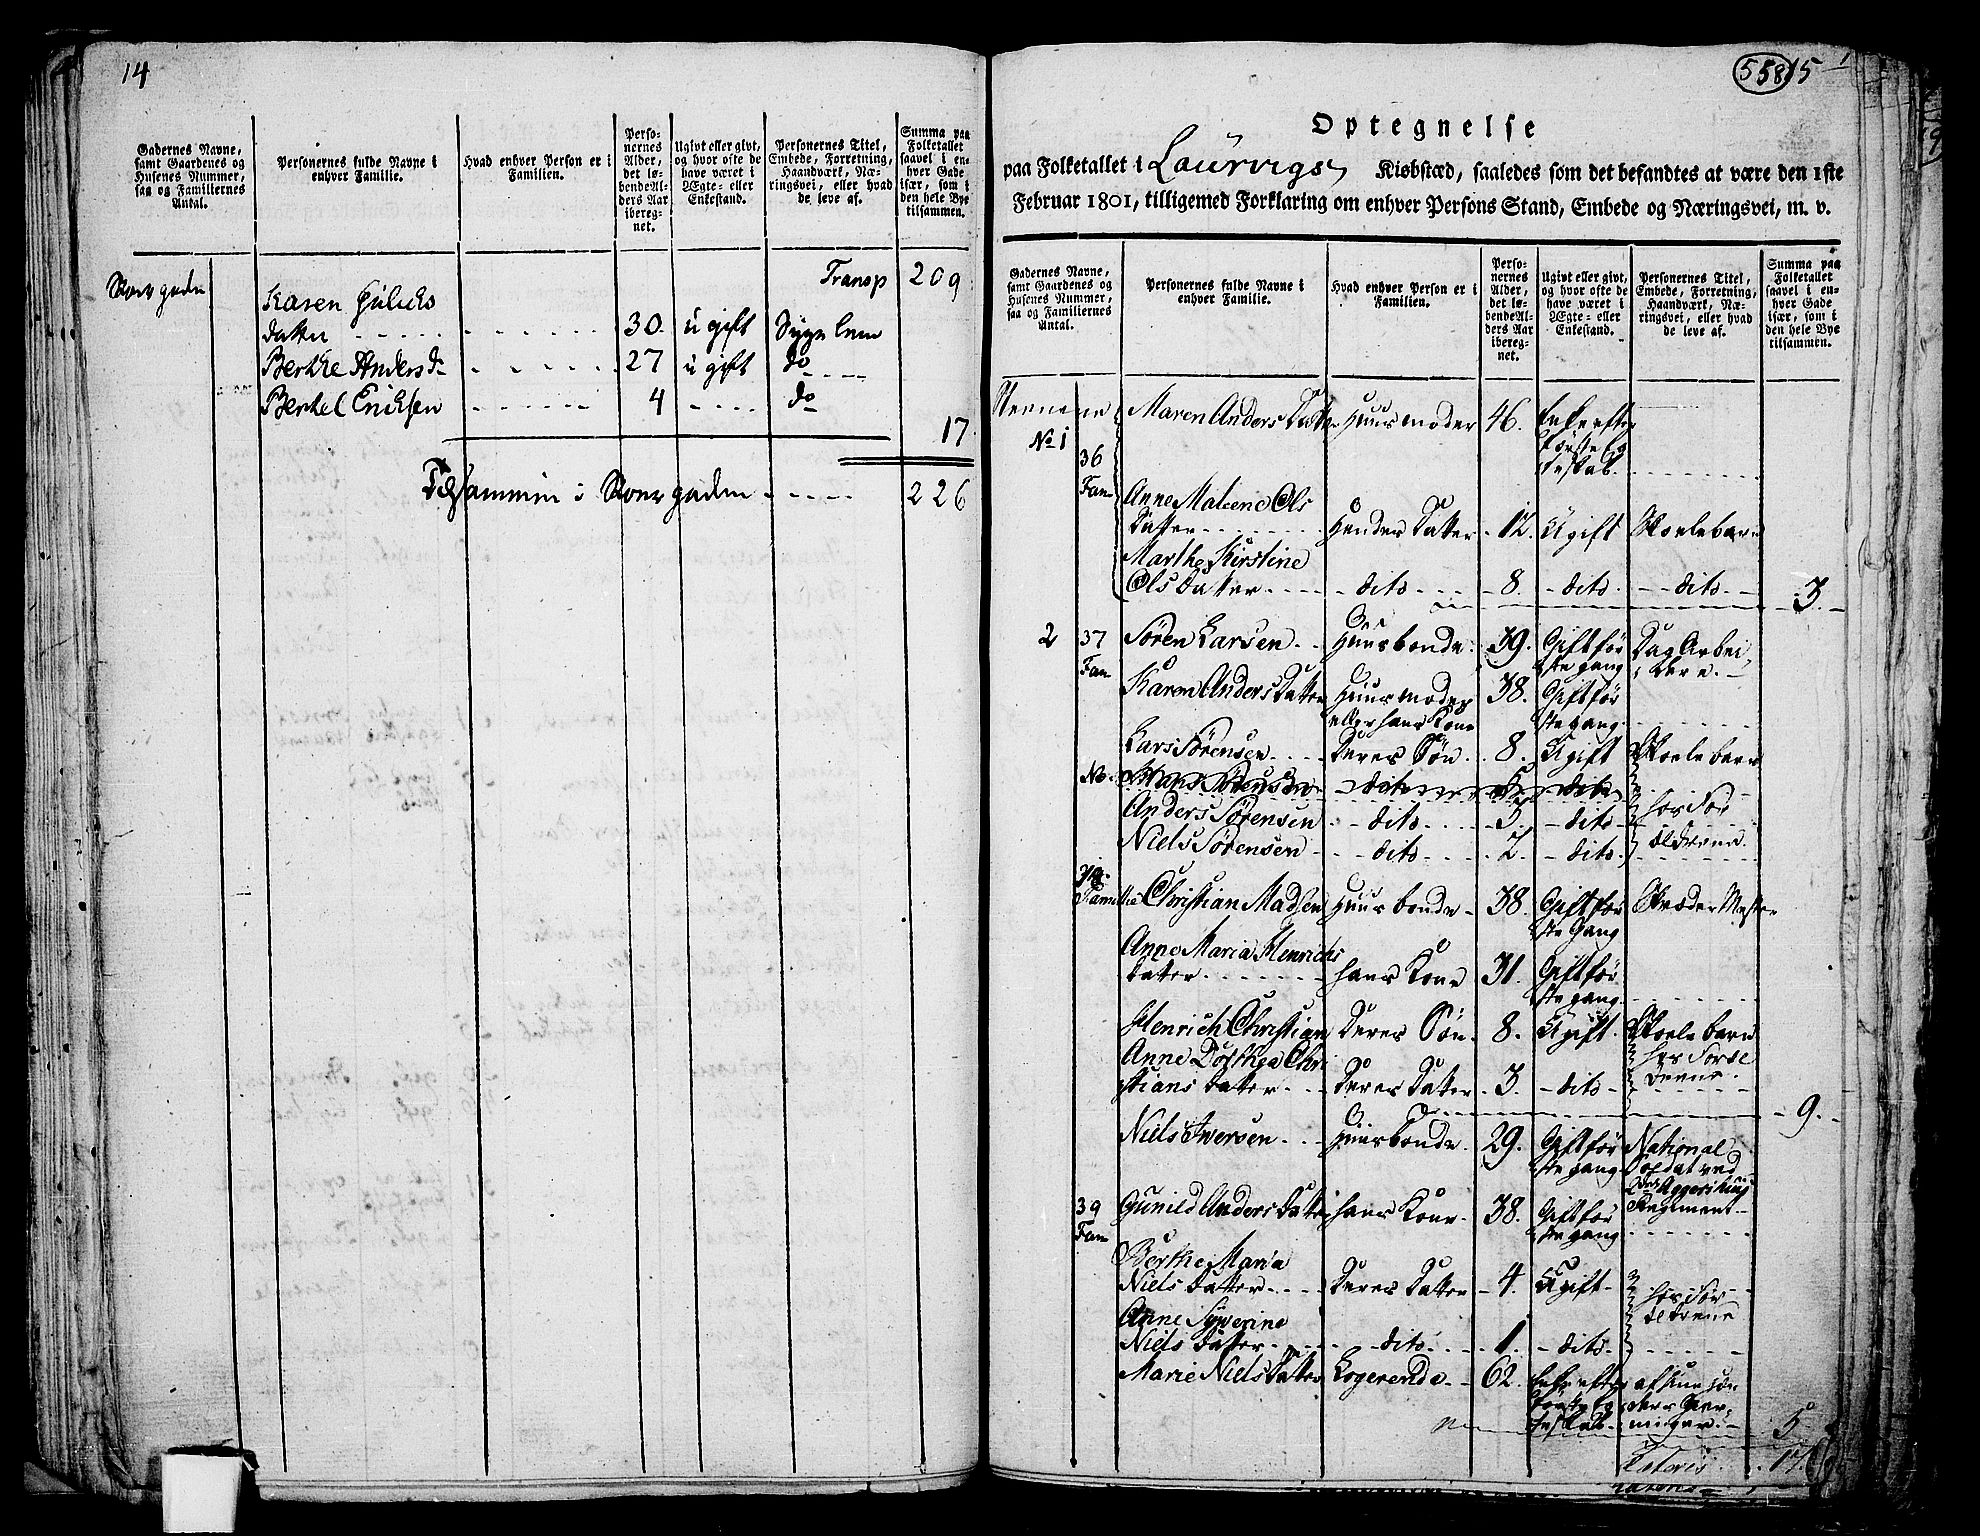 14
Gadernes Navne,
samt Gaardenes og
Husenes Nummer,
saa og Familiernes
Antal.
Personernes fulde Navne i
enhver Familie.
Hvad enhver Person er i
Familien.
Perso-
nernes
Alder,
det lø-
bende Al-
ders Aar
iberegnet.
Ugivt eller givt,
og hvor ofte de
have været i
Ægte- eller
Enkestand.
Personernes Titel,
Embede, Forretning,
Haandværk, Næ-
ringsvei, eller hvad
de leve af.
Summa paa
Folketallet
saavel i en-
hver Gade
især, som i
den hele Bye
tilsammen.
Transp 209
Karen Gulichs
datter 30 ugift Syge Lem
Berthe Anders d 27 ugift do
Berthel Erichsen 4 do
17
Tilsammen i 226
55815
Optegnelse
paa Folketallet i Laurvigs Kiøbstæd, saaledes som det befandtes at være den 1ste
Februar 1801, tilligemed Forklaring om enhver Persons Stand, Embede og Næringsvei, m. v.
Gadernes Navne,
samt Gaardenes og
Husenes Nummer,
saa og Familiernes
Antal.
Personernes fulde Navne i
enhver Familie.
Hvad enhver Person er i
Familien.
Perso-
nernes
Alder,
det lø-
bende Al-
ders Aar
ibereg-
net.
Ugivt eller givt,
og hvor ofte de
have været i
Ægte- eller
Enkestand.
Personernes Titel,
Embede, Forretning,
Haandværk, Næ-
ringsvei, eller hvad
de leve af.
Summa paa
Folketallet
saavel i en-
hver Gade
især, som i
den hele Bye
tilsammen.
Maren Anders Datter Huusmoder 46. Enke efter
No 1 første Eg
36 teskab.
Fam Anne Malene Ols
Datter Hendes Datter 12. Ugift Skolebarn
Marthe Kirstine
Ols Datter dito 8. dito dito
3
2 37 Søren Larsen Huusbonde 39. Gift før Dag Arbei
Fam ste gang dere.
Karen Anders Datter Huusmoder 38. Gift før
eller hans Kone ste gang.
Lars Sørensen Deres Søn 8. Ugift Skolebarn
Hans Sørensen dito 5 dito
Anders Sørensen dito 5. dito hos For
Niels Sørensen dito 2. dito ældrene.
Familie Christian Madsen Huusbonde 38. Gift før Skræder Mester
ste Gang
Anne Maria Henrichs
datter hans Kone 31. Gift før
ste gang.
Henrich Christian Deres Søn 8. Ugift Skolebarn
Anne Dorthea Chri hos Foræl
stians datter Deres Datter 3. dito drene.
9.
Niels Iversen Huusbonde 29. Gift før National
ste gang Soldat ved
39 Gunild Anders datter hans Kone 38. Gift før Regiment
Fam ste gang
Berthe Maria
Niels datter Deres Datter 4. Ugift hos For
Anne Syverine ældrene
Niels datter dito 1. dito
Marie Niels datter Logerende 62. Enke efter af sine
første Eg
teskab.
5
Lateris 17.